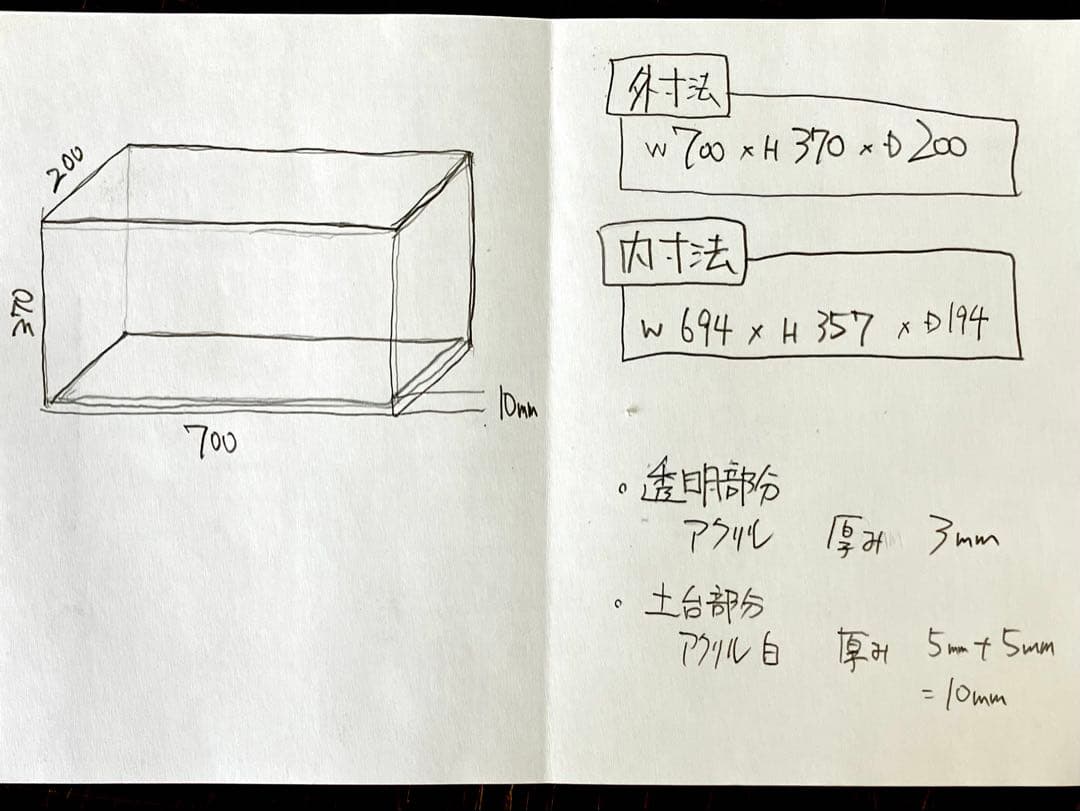 200
370
700
10mm
外寸法
W 700 × H 370 × D 200
内寸法
W 694 × H 357 × D 194
。透明部分
アクリル 厚み 3mm
。土台部分
アクリル白 厚み 5mm + 5mm
= 10mm